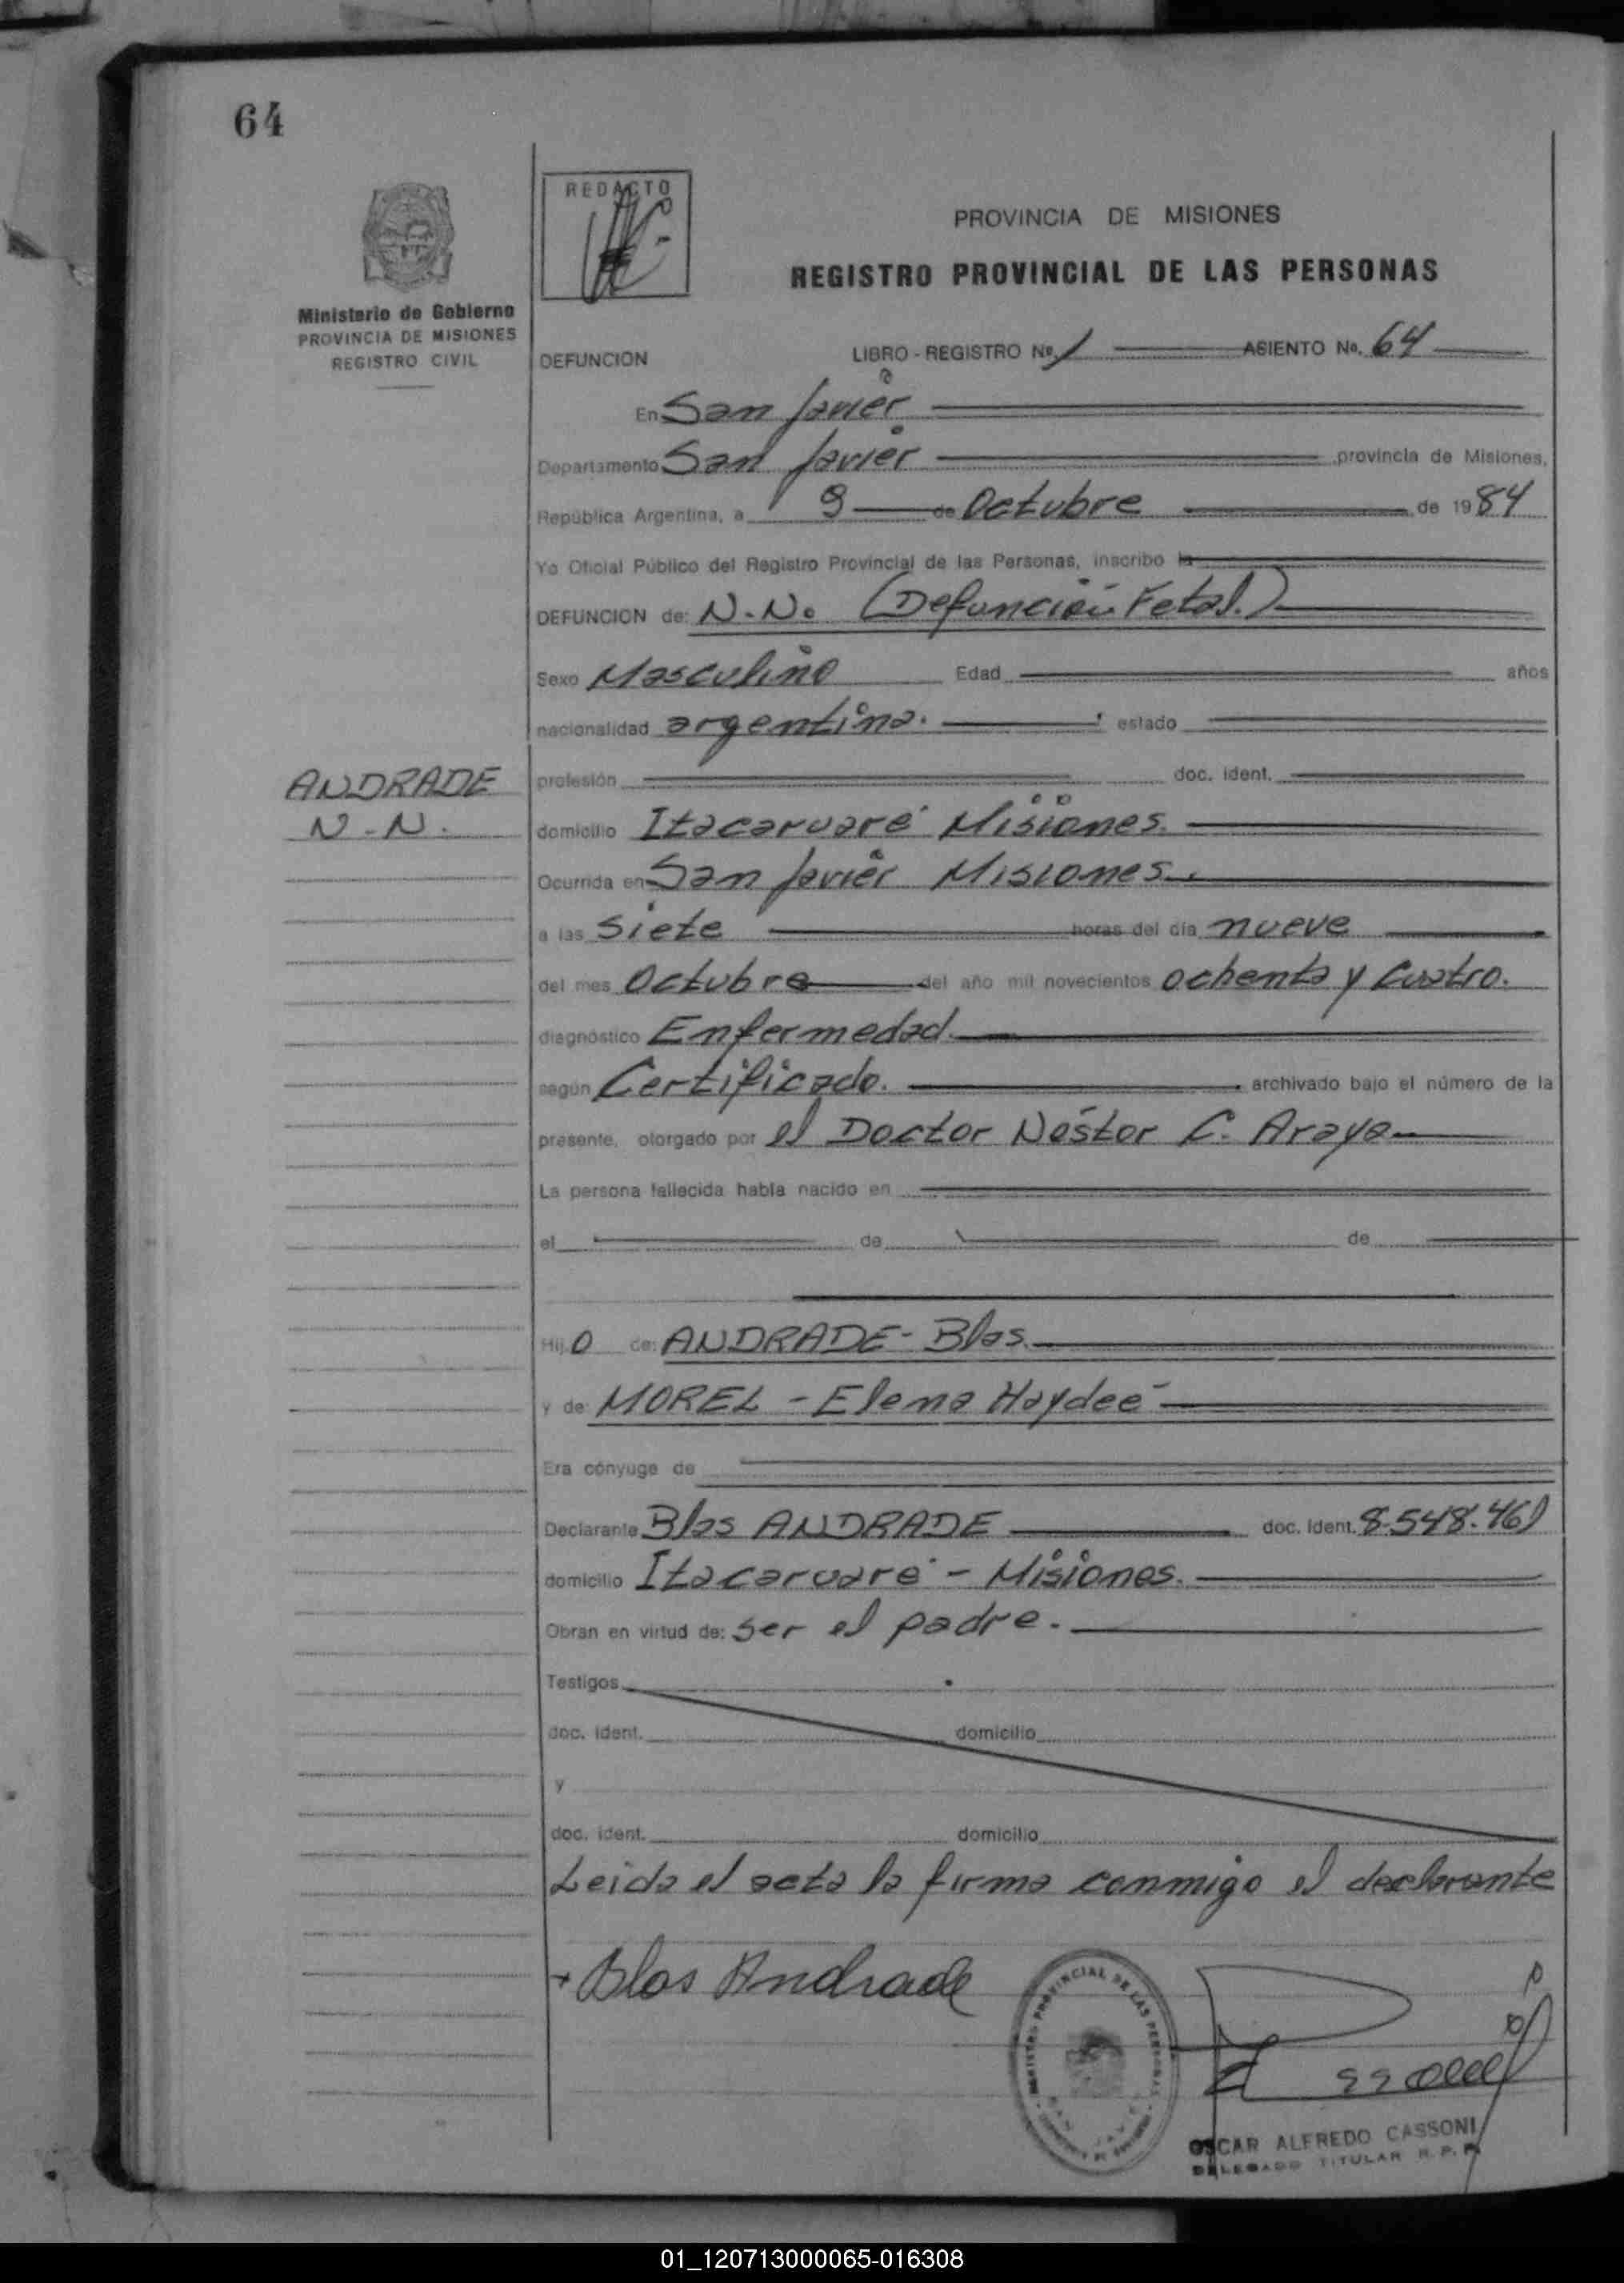 64
REDACTO
PROVINCIA DE MISIONES
REGISTRO PROVINCIAL DE LAS PERSONAS
Ministerio de Gobierno
PROVINCIA DE MISIONES
REGISTRO CIVIL
DEFUNCION LIBRO - REGISTRO No. 1 ASIENTO No. 64
En San Javier
Departamento San Javier provincia de Misiones,
República Argentina, a 9 de Octubre de 1984
Yo Oficial Público del Registro Provincial de las Personas, inscribo la
DEFUNCION de: N.N. (Defunción Fetal.)
Sexo Masculino Edad años
nacionalidad argentina. estado
ANDRADE
N-N.
profesión doc. ident.
domicilio Itacaruaré Misiones.
Ocurrida en San Javier Misiones.
a las Siete horas del día nueve
del mes Octubre del año mil novecientos ochenta y Cuatro.
diagnóstico Enfermedad.
según Certificado. archivado bajo el número de la
presente, otorgado por el Doctor Néstor C. Araya
La persona fallecida había nacido en
el de de
Hijo de: ANDRADE - Blas.
y de: MOREL - Elena Haydeé
Era cónyuge de
Declarante Blas ANDRADE doc. ident. 8.548.461
domicilio Itacaruaré - Misiones.
Obran en virtud de: ser el padre.
Testigos
doc. ident. domicilio
y
doc. ident. domicilio
Leida el acta la firma conmigo el declarante
+ Blas Andrade
REGISTRO PROVINCIAL DE LAS PERSONAS
OSCAR ALFREDO CASSONI
DELEGADO TITULAR R.P.P.
01_120713000065-016308